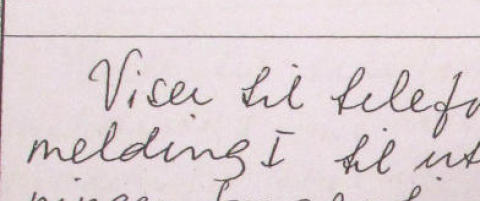 Viser til telefo
melding I til ut